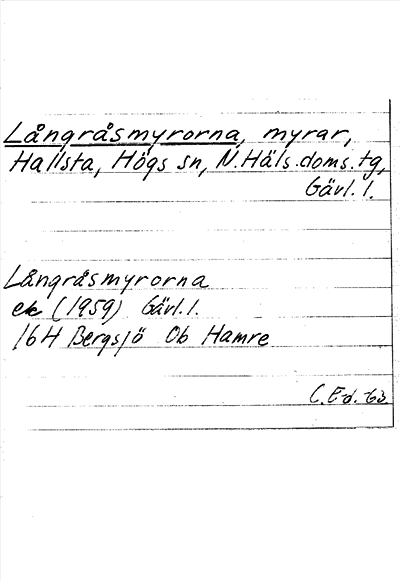 Långråsmyrorna, myrar,
Hallsta, Högs sn, N. Häls. doms. tg,
Gävl. l.
Långråsmyrorna
ek (1959) Gävl. l.
16H Bergsjö Ob Hamre
C. Ed. -63